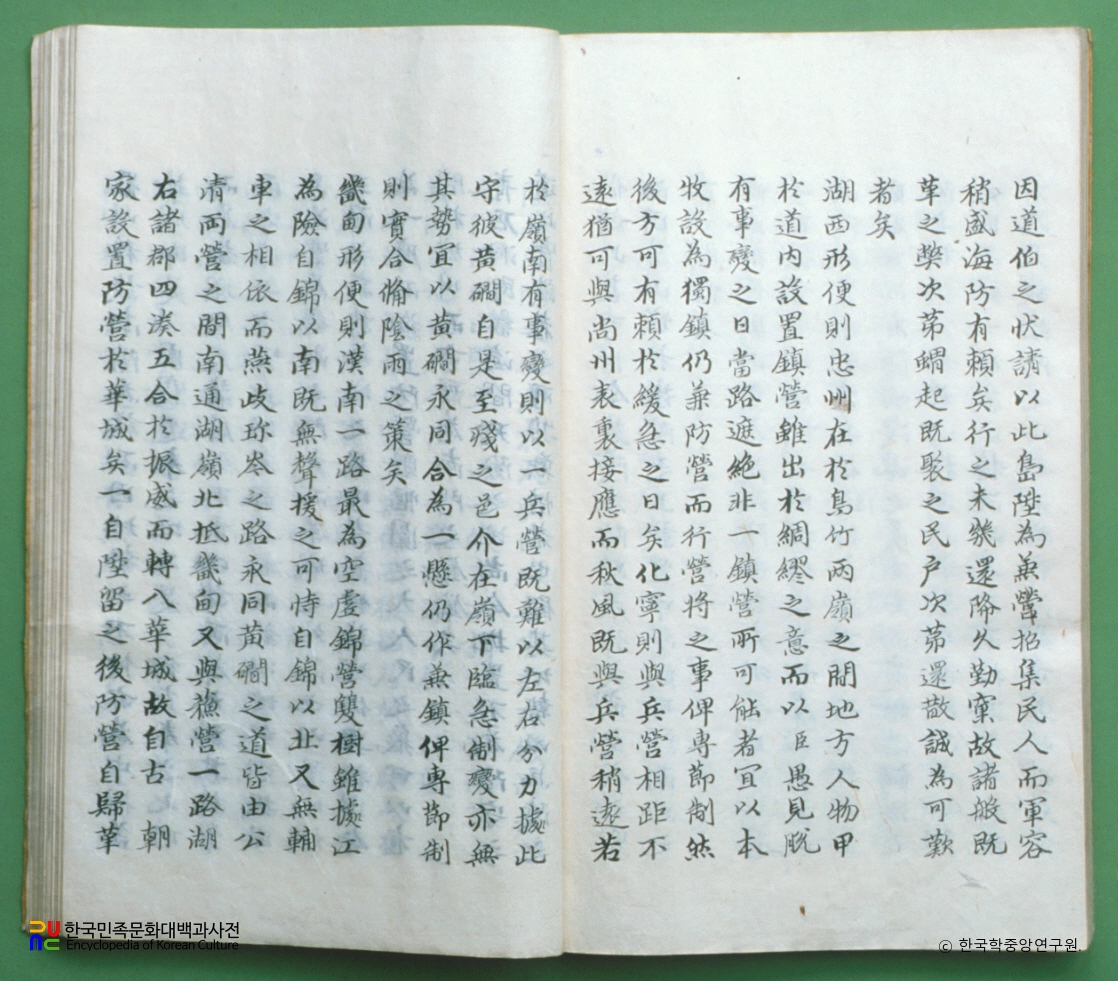 因道伯之狀請以此島陞為兼營招集民人而軍容
稍盛海防有賴矣行之未幾還降久勤寀故諸般既
革之弊次苐蝟起既聚之民戶次苐還散誠為可歎
者矣
湖西形便則忠州在於鳥竹兩嶺之間地方人物甲
於道內設置鎮營雖出於綢繆之意而以臣愚見脫
有事變之日當路遮絶非一鎮營所可能者冝以本
牧設為獨鎮仍兼防營而行營將之事俾專節制然
後方可有賴於緩急之日矣化寧則與兵營相距不
遠猶可與尚州表裏接應而秋風既與兵營稍遠若
於嶺南有事變則以一兵營既難以左右分力據此
守彼黄磵自是至殘之邑介在嶺下臨急制變亦無
其勢冝以黄磵永同合為一懸仍作兼鎮俾專節制
則實合備陰雨之策矣
畿甸形便則漢南一路最為空虛錦營雙樹雖據江
為險自錦以南既無聲援之可恃自錦以北又無輔
車之相依而燕歧珎岑之路永同黄磵之道皆由公
清兩營之間南通湖嶺北抵畿甸又與䆉營一路湖
右諸郡四湊五合於振威而轉入華城故自古 朝
家設置防營於華城矣一自陞留之後防營自歸革
한국민족문화대백과사전
Encyclopedia of Korean Culture
© 한국학중앙연구원.